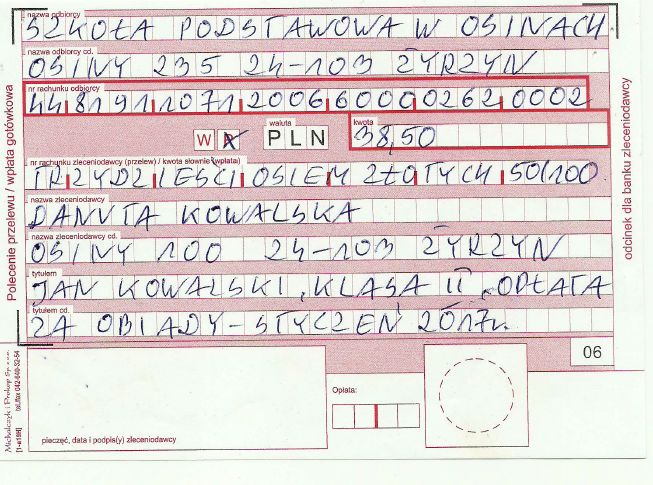 nazwa odbiorcy
SZKOŁA PODSTAWOWA W OSINACH
nazwa odbiorcy cd.
OSINY 235 24-103 ŻYRZYN
nr rachunku odbiorcy
44 8191 1071 2006 6000 0262 0002
waluta kwota
W P PLN 38,50
nr rachunku zleceniodawcy (przelew) / kwota słownie (wpłata)
TRZYDZIEŚCI OSIEM ZŁOTYCH 50/100
nazwa zleceniodawcy
DANUTA KOWALSKA
nazwa zleceniodawcy cd.
OSINY 100 24-103 ŻYRZYN
tytułem
JAN KOWALSKI, KLASA II, OPŁATA
tytułem cd.
ZA OBIADY - STYCZEŃ 2017r.
06
Opłata:
pieczęć, data i podpis(y) zleceniodawcy
Polecenie przelewu / wpłata gotówkowa
odcinek dla banku zleceniodawcy
Michalczyk i Prokop Sp. z o.o.
tel./fax 042-640-32-54